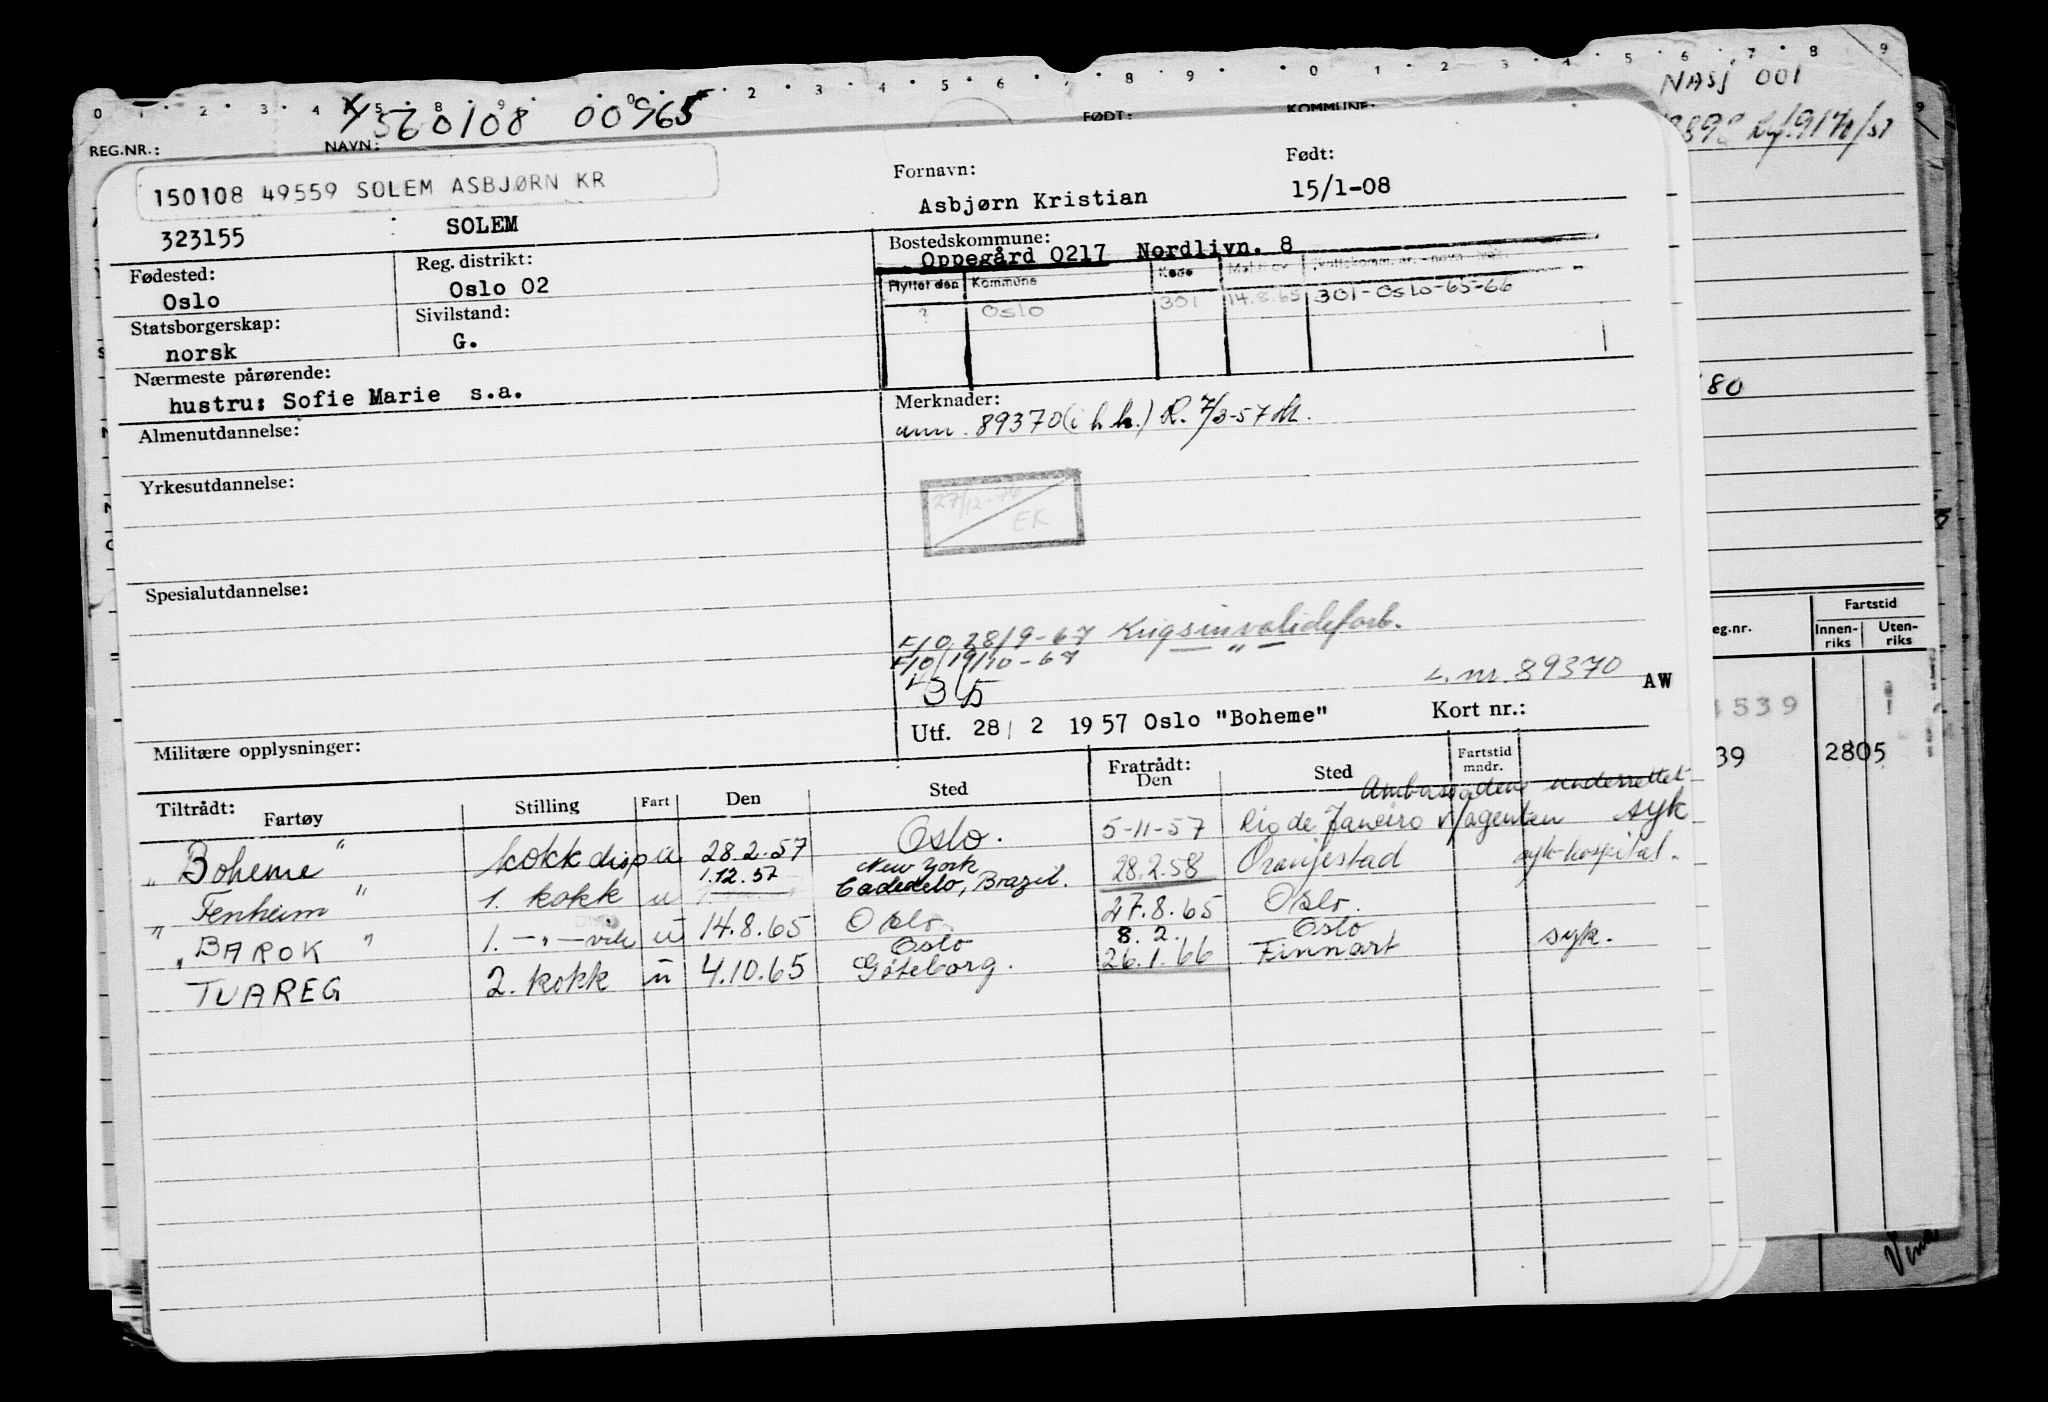 0 1 2 3 4 5 8 9 2 3 4 5 6 7 8 9 0 1 2 3 4 5 6 7 8 9
NASJ 001
560108 00965
REG.NR.: NAVN: FØDT: KOMMUNE:
150108 49559 SOLEM ASBJØRN KR
Fornavn: Født:
323155 SOLEM Asbjørn Kristian 15/1-08
Fødested: Reg. distrikt: Bostedskommune:
Oslo Oslo 02 Oppegård 0217 Nordlivn. 8
Flyttet den Kommune Kode
? Oslo 301 14.8.65 301-Oslo-65-66
Statsborgerskap: Sivilstand:
norsk G.
Nærmeste pårørende:
hustru: Sofie Marie s.a.
80
Merknader:
ann. 89370 (i h.h.) R. 7/3-57
Almenutdannelse:
Yrkesutdannelse:
27/12-76
EK
Spesialutdannelse:
F/O 28/9-67 Krigsinvalideforb.
F/O 19/10-67 — " —
35
L. nr. 89370 AW
Utf. 28/ 2 1957 Oslo "Boheme" Kort nr.:
Militære opplysninger:
Fartstid
eg.nr. Innen-riks Uten-riks
4539
39 2805
Tiltrådt: Fratrådt: Fartstid mndr.
Fartøy Stilling Fart Den Sted Den Sted
Ambassaden underrettet
"Boheme" kokk disp u 28.2.57 Oslo. 5-11-57 Rio de Janeiro v/agenten syk
New York
"Fenheim" 1. kokk u 1.12.57 Cadedelo, Brazil. 28.2.58 Oranjestad syk-hospital.
"BAROK" 1. — " — vik u 14.8.65 Oslo. 27.8.65 Oslo.
Oslo 8. 2. Oslo
TUAREG 2. kokk u 4.10.65 Göteborg. 26.1.66 Finnart syk.